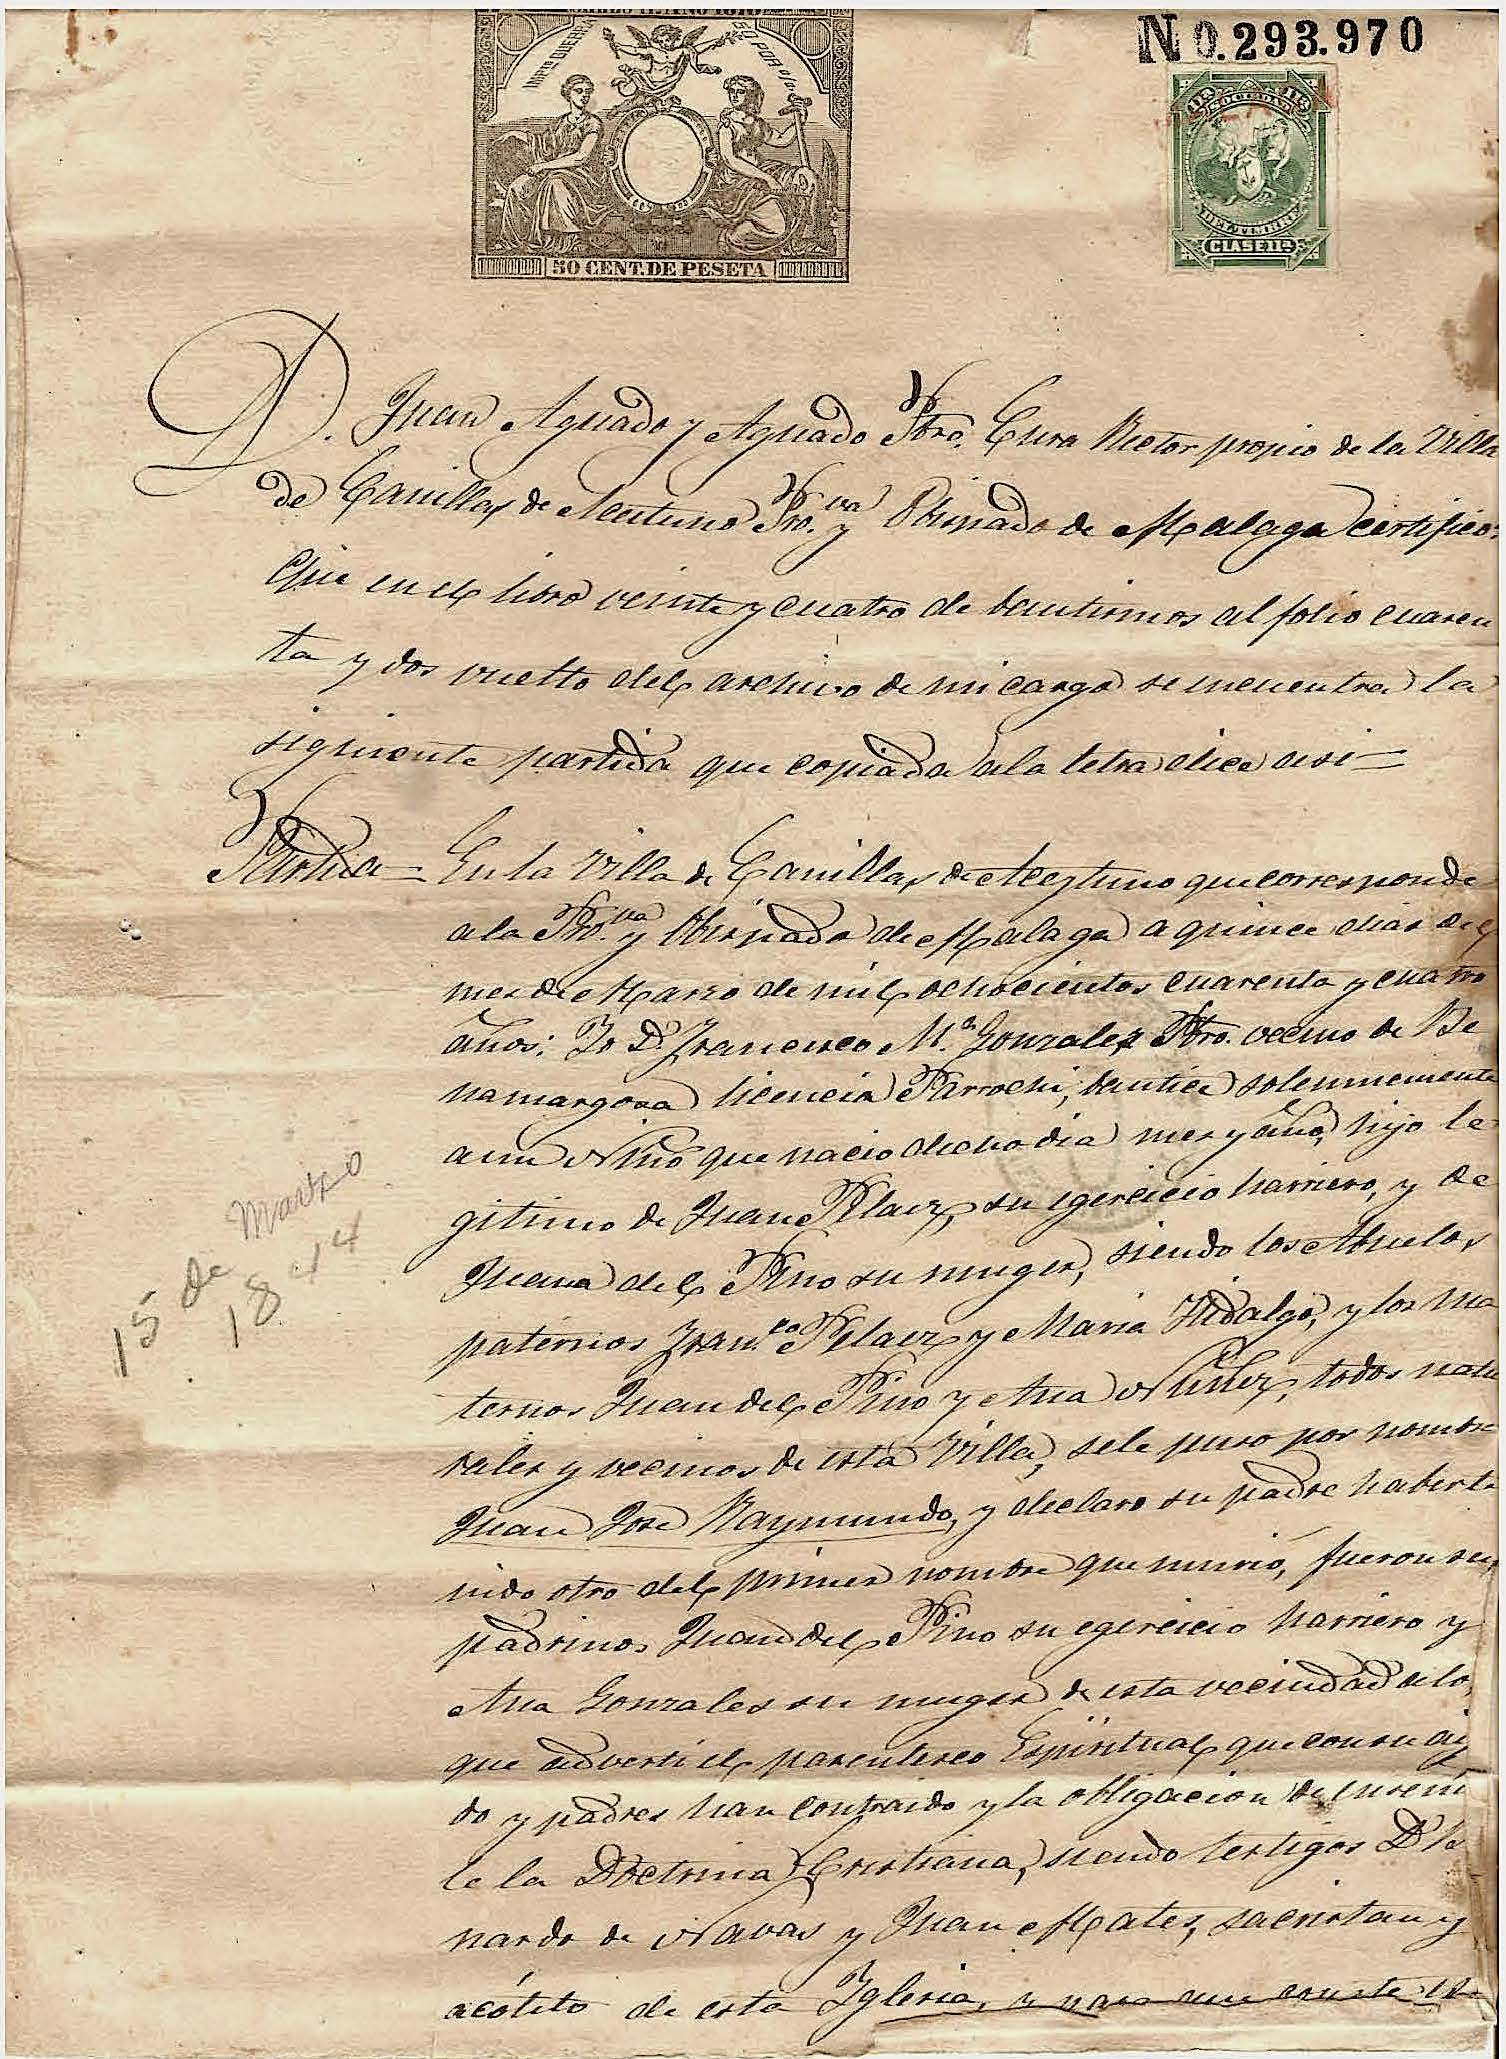 N 0.293.970
IMPTO DE GUERRA
50 POR 0/0
50 CENT. DE PESETA
11ª 11ª
SOCIEDAD
DEL TIMBRE
CLASE 11ª
D. Juan Aguado y Aguado Pbro. Cura Rector propio de la Villa
de Canillas de Aceituno Pro.va y Obispado de Malaga certifico:
Que en el libro veinte y cuatro de bautismos al folio cuaren
ta y dos vuelto del archivo de mi cargo se encuentra la
siguiente partida que copiada a la letra dice asi =
Partida = En la Villa de Canillas de Aceytuno que corresponde
a la Pro.va y Obispado de Malaga a quince dias del
mes de Marzo de mil ochocientos cuarenta y cuatro
años: Yo D. Francisco M.ª Gonzalez Pbro. vecino de Be
namargosa licencia Parrochi, bautice solemnemente
a un Niño que nacio dicho dia mes y año, hijo le
gitimo de Juan Pelaez, su egercicio harriero, y de
Juana del Pino su muger, siendo los Abuelos
paternos Fran.co Pelaez y Maria Hidalgo, y los ma
ternos Juan del Pino y Ana Nuñez, todos natu
rales y vecinos de esta Villa, se le puso por nombre
Juan Jose Raymundo, y declaro su padre haber te
nido otro del primer nombre que murió, fueron sus
padrinos Juan del Pino su egercicio harriero y
Ana Gonzales su muger de esta vecindad a los
que adverti el parentesco Espiritual que con su aija
do y padres han contraido y la obligacion de enseñar
le la Doctrina Cristiana, siendo testigos D. Ber
nardo de Navas y Juan Mates, sacristan y
acólito de esta Yglesia, y para que conste
15 de Marzo
1844